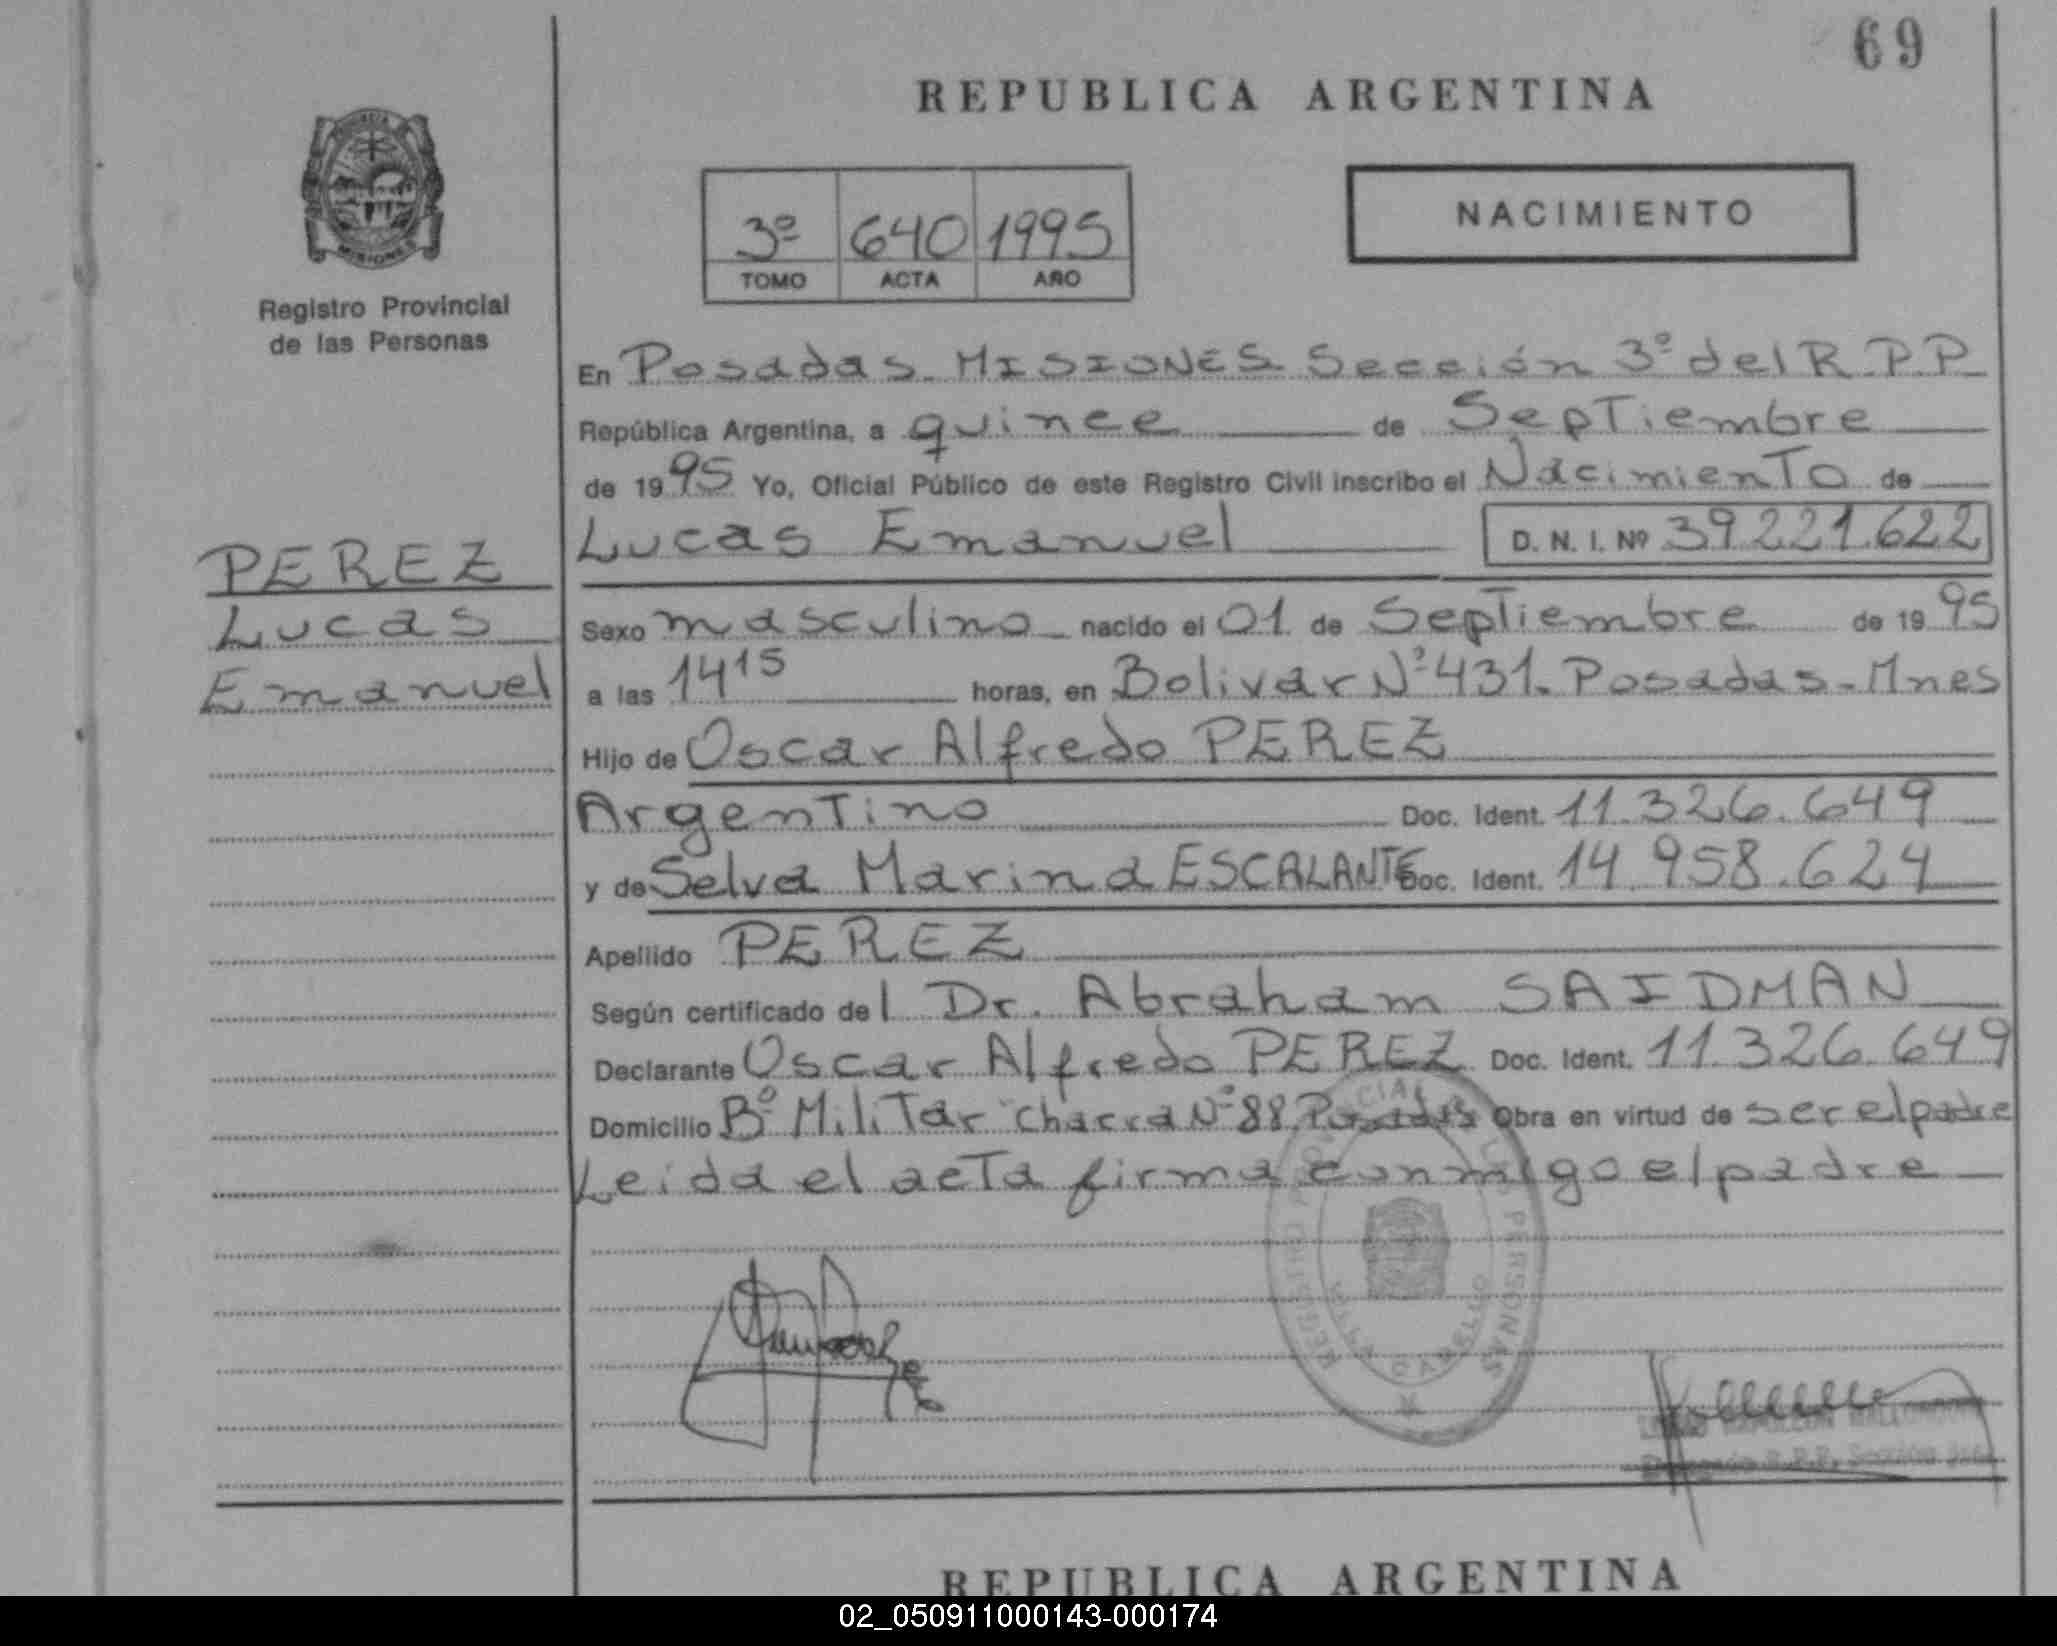 69
REPUBLICA ARGENTINA
PROVINCIA
MISIONES
Registro Provincial
de las Personas
3º 640 1995
TOMO ACTA AÑO
NACIMIENTO
En Posadas. MISIONES Sección 3º del R.P.P.
República Argentina, a quince de Septiembre
de 1995 Yo, Oficial Público de este Registro Civil inscribo el Nacimiento de
Lucas Emanuel D. N. I. Nº 39.221.622
PEREZ
Lucas
Emanuel
Sexo masculino nacido el 01 de Septiembre de 1995
a las 14 15 horas, en Bolivar Nº 431. Posadas - Mnes
Hijo de Oscar Alfredo PEREZ
Argentino Doc. Ident. 11.326.649
y de Selva Marina ESCALANTE Doc. Ident. 14.958.624
Apellido PEREZ
Según certificado del Dr. Abraham SAIDMAN
Declarante Oscar Alfredo PEREZ Doc. Ident. 11.326.649
Domicilio Bº Militar Chacra Nº 88 Posadas Obra en virtud de ser el padre
Leida el acta firma conmigo el padre
REGISTRO PROVINCIAL DE LAS PERSONAS
VILLA CABELLO
Delegado R.P.P. Sección 3ra.
REPUBLICA ARGENTINA
02_050911000143-000174